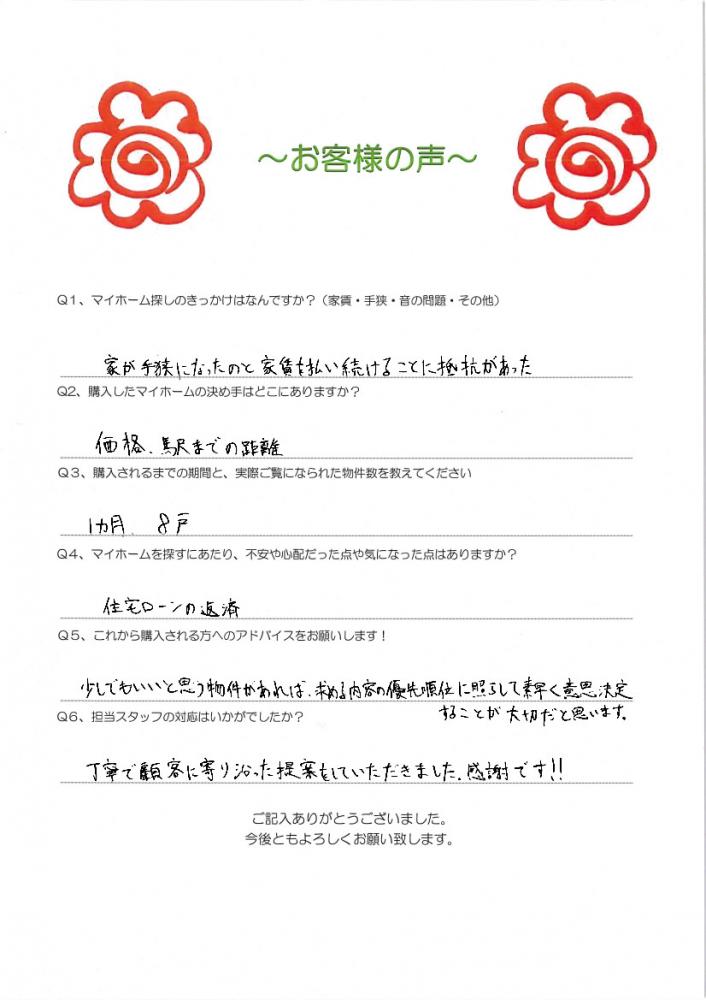 ～お客様の声～
Q1、マイホーム探しのきっかけはなんですか？（家賃・手狭・音の問題・その他）
家が手狭になったのと家賃を払い続けることに抵抗があった
Q2、購入したマイホームの決め手はどこにありますか？
価格、駅までの距離
Q3、購入されるまでの期間と、実際ご覧になられた物件数を教えてください
1カ月、8戸
Q4、マイホームを探すにあたり、不安や心配だった点や気になった点はありますか？
住宅ローンの返済
Q5、これから購入される方へのアドバイスをお願いします！
少しでもいいと思う物件があれば、求める内容の優先順位に照らして素早く意思決定
することが大切だと思います。
Q6、担当スタッフの対応はいかがでしたか？
丁寧で顧客に寄り沿った提案をしていただきました。感謝です!!
ご記入ありがとうございました。
今後ともよろしくお願い致します。